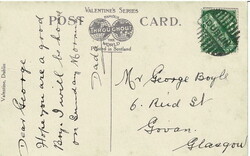 VALENTINE'S SERIES
POST CARD.
FAMOUS
THROUGHOUT
THE WORLD
Printed in Scotland
Valentine, Dublin
Dear George
Hope you are a good
Boy. I will be home
on Sunday Morning
Dada
Mr George Boyle
6. Reid St
Govan.
Glasgow